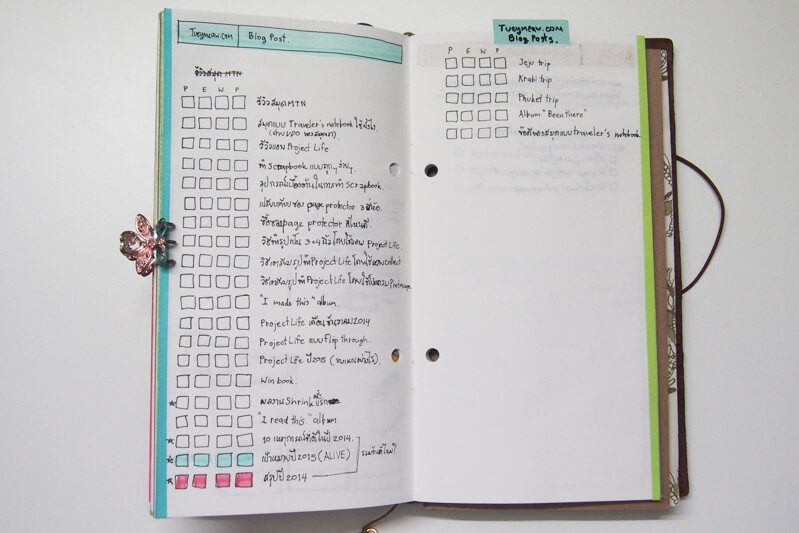 Tueymerw.com Blog Post.
รีวิวสมุด MTN
P E W P
รีวิวสมุด MTN
สมุดแบบ Traveler's notebook ใช้ยังไง
รีวิวแอพ Project Life
ทำ Scrapbook แบบถูกๆ ง่ายๆ
อุปกรณ์เบื้องต้นในการทำ scrapbook
เปรียบเทียบซอง page protector 3 ยี่ห้อ.
ซื้อซอง page protector ที่ไหนดี
วิธีทำรูปขนาด 3×4 นิ้ว โดยใช้แอพ Project Life
วิธีเตรียมรูปทำ Project Life โดยใช้แอพ collect
วิธีเตรียมรูปทำ Project Life โดยใช้โปรแกรม
"I made this" album.
Project Life เดือนธันวาคม 2014
Project Life แบบ Flip through.
Project Life ปี 2015
Win book.
ผลงาน Shrink
"I read this." album
10 เหตุการณ์ดีๆในปี 2014.
เป้าหมายปี 2015 (ALIVE)
สรุปปี 2014
รวมกันดีไหม?
Tueymerw.com
Blog Posts.
P E W P
Jeju trip
Krabi trip
Phuket trip
Album "Been there"
ข้อดีของสมุดแบบ traveler's notebook